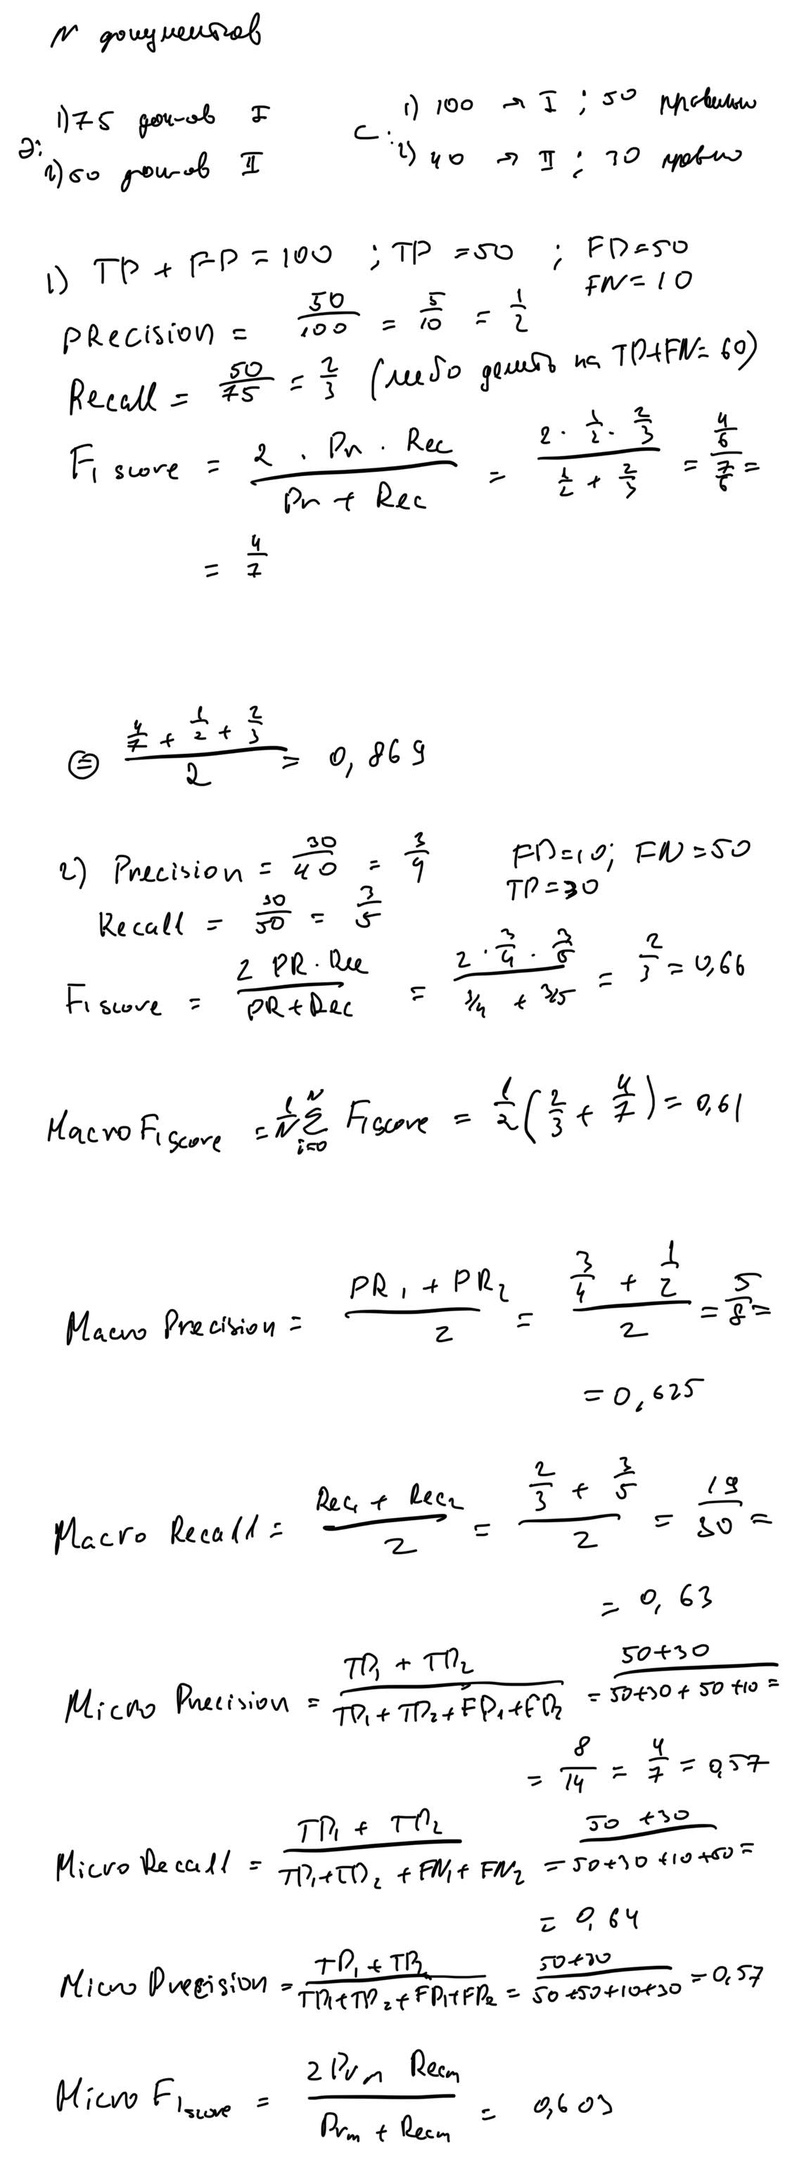 N документов
Э: 1) 75 док-ов I
2) 50 док-ов II
C: 1) 100 → I ; 50 правильно
2) 40 → II ; 30 правильно
1) TP + FP = 100 ; TP = 50 ; FP = 50
FN = 10
PRecision = 50/100 = 5/10 = 1/2
Recall = 50/75 = 2/3 (либо делить на TP+FN = 60)
F1 score = 2 · Pr · Rec / (Pr + Rec) = (2 · 1/2 · 2/3) / (1/2 + 2/3) = (4/6) / (7/6) =
= 4/7
⊜ (4/7 + 1/2 + 2/3) / 2 = 0,869
2) Precision = 30/40 = 3/4 FP = 10; FN = 50
TP = 30
Recall = 30/50 = 3/5
F1 score = 2 PR · Rec / (PR + Rec) = (2 · 3/4 · 3/5) / (3/4 + 3/5) = 2/3 = 0,66
Macro F1 score = 1/N Σ_{i=0}^{N} F1 score = 1/2 (2/3 + 4/7) = 0,61
Macro Precision = (PR1 + PR2) / 2 = (3/4 + 1/2) / 2 = 5/8 =
= 0,625
Macro Recall = (Rec1 + Rec2) / 2 = (2/3 + 3/5) / 2 = 19/30 =
= 0,63
Micro Precision = (TP1 + TP2) / (TP1 + TP2 + FP1 + FP2) = (50+30) / (50+30+50+10) =
= 8/14 = 4/7 = 0,57
Micro Recall = (TP1 + TP2) / (TP1 + TP2 + FN1 + FN2) = (50+30) / (50+30+10+50) =
= 0,64
Micro Precision = (TP1 + TP2) / (TP1 + TP2 + FP1 + FP2) = (50+30) / (50+50+10+30) = 0,57
Micro F1 score = 2 Prm Recm / (Prm + Recm) = 0,603